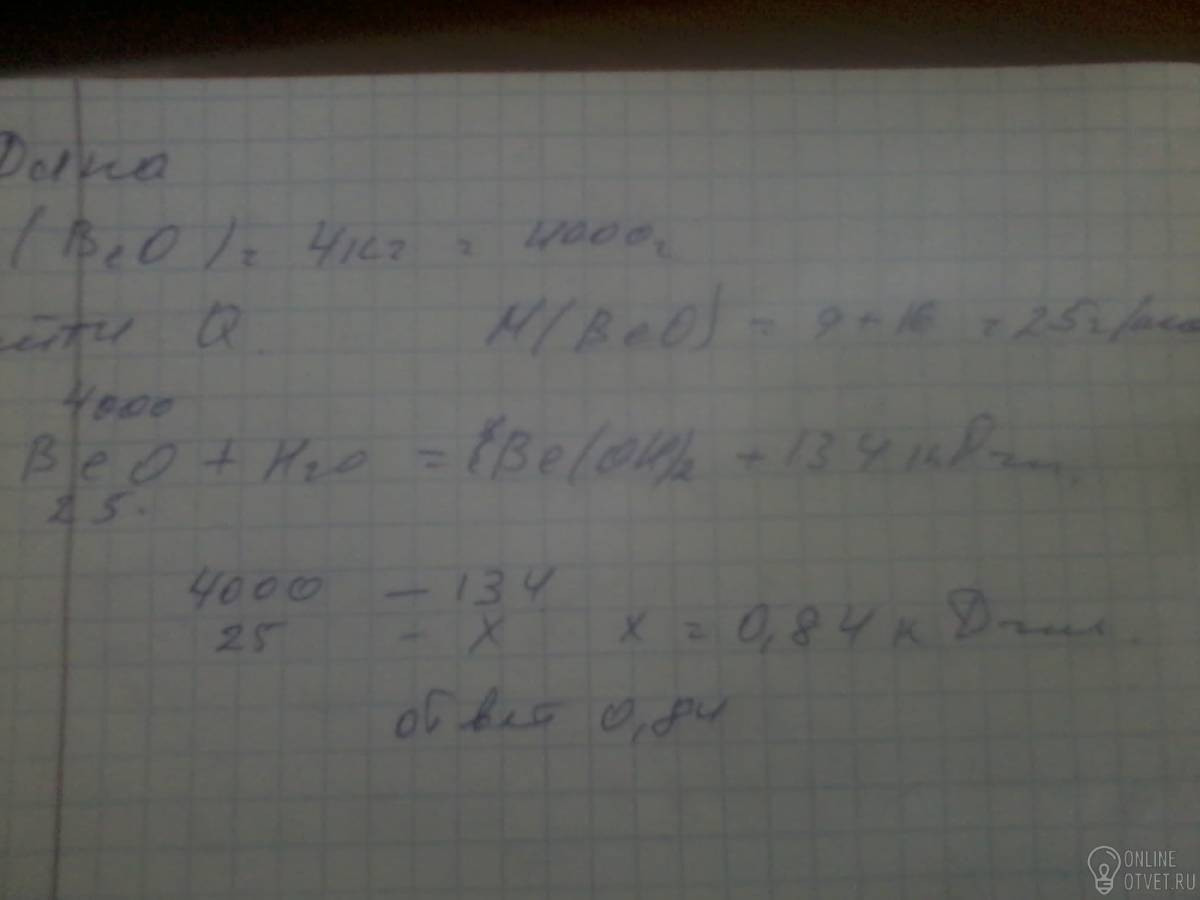 Дано
(BeO) = 4кг = 4000г
йти Q. M(BeO) = 9+16 = 25г/мо
4000
BeO + H2O = Be(OH)2 + 134 кДж.
25.
4000 – 134
25 - X x = 0,84 кДж.
ответ 0,84
ONLINE
OTVET.RU